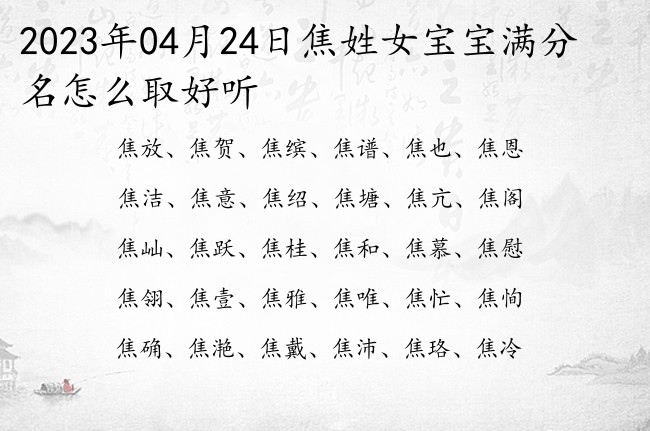 2023年04月24日焦姓女宝宝满分
名怎么取好听
焦放、焦贺、焦缤、焦谱、焦也、焦恩
焦洁、焦意、焦绍、焦塘、焦亢、焦阁
焦屾、焦跃、焦桂、焦和、焦慕、焦慰
焦翎、焦壹、焦雅、焦唯、焦忙、焦恂
焦确、焦滟、焦戴、焦沛、焦珞、焦冷